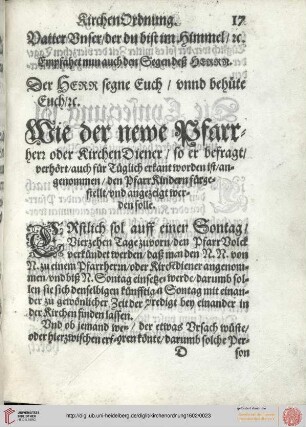 KirchenOrdnung. 17
Vatter Vnser/der du bist im Himmel/ ꝛc.
Empfahet nun auch den Segen deß HERRN.
Der HERR segne Euch / vnnd behüte
Euch/ꝛc.
Wie der newe Pfarr-
herr oder KirchenDiener / so er befragt/
verhört/auch für Tüglich erkant worden ist/an-
genommen / den PfarrKindern fürge-
stelt/vnd angezeigt wer-
den solle.
ERstlich sol auff einen Sontag/
Vierzehen Tage zuvorn/den PfarrVolck
verkündet werden/daß man den N. N. von
N. zu einem Pfarrherrn/oder KirchDiener angenom-
men/vnd biß N. Sontag einsetzē werde/darumb sol-
len sie sich denselbigen künfftigē Sontag mit einan-
der zu gewönlicher Zeit der Predigt bey einander in
der Kirchen finden lassen.
Vnd ob jemand wer/ der etwas Vrsach wüste/
oder hierzwischen erfahren könte/darumb solche Per-
D son
http://digi.ub.uni-heidelberg.de/diglit/kirchenordnung1602/0023